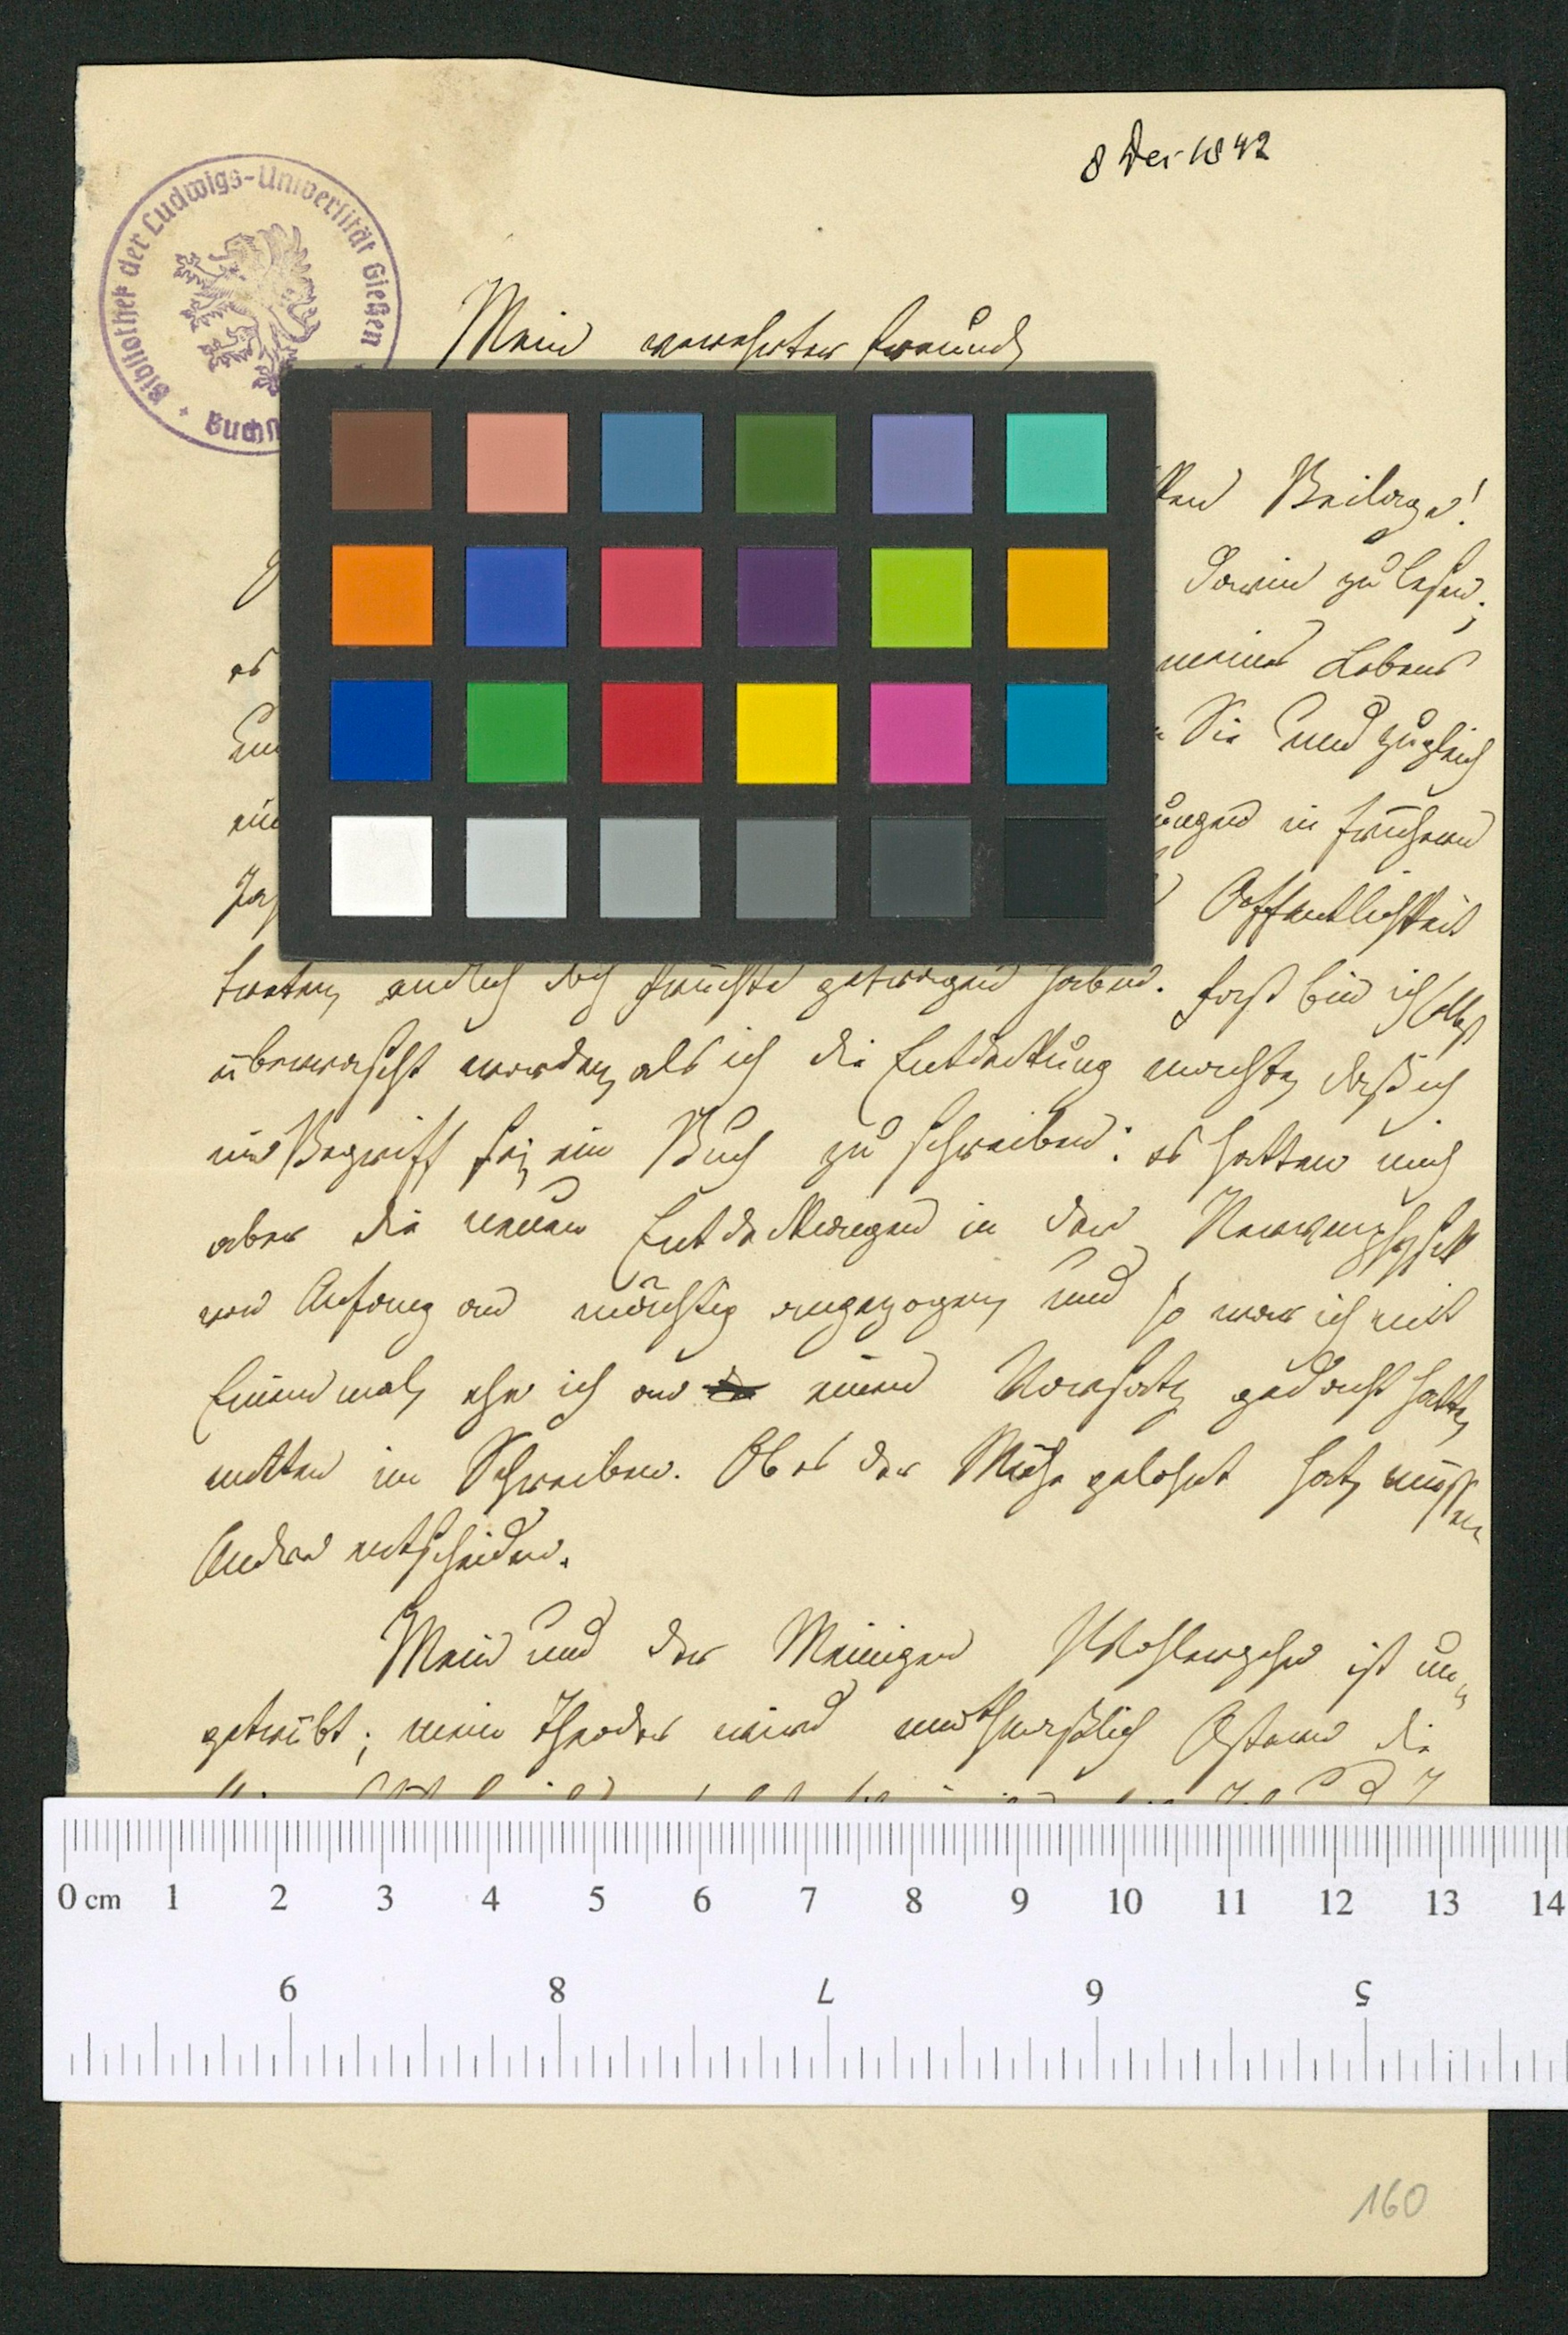 8 Dec 1842
Bibliothek der Ludwigs-Universität Gießen
Mein verehrter Freund
Beilage!
darin zu lesen;
es
meines Lebens
Sie und zugleich
ein
ungen in frühern
Oeffentlichkeit
treten, endlich doch Früchte getragen haben. Fast bin ich selbst
überrascht worden, als ich die Entdeckung machte, daß ich
im Begriff sei, ein Buch zu schreiben: es hatten mich
aber die neuen Entdeckungen in der Nervenphysik
von Anfang an mächtig angezogen, und so war ich mit
Einem mal, ehe ich an einen Vorsatz gedacht hatte,
mitten im Schreiben. Ob es der Mühe gelohnt hat, müssen
Andere entscheiden.
Mein und der Meinigen Wohlergehn ist un-
getrübt; mein Theodor wird muthmaßlich Ostern die
0 cm 1 2 3 4 5 6 7 8 9 10 11 12 13 14
9 8 7 6 5
160